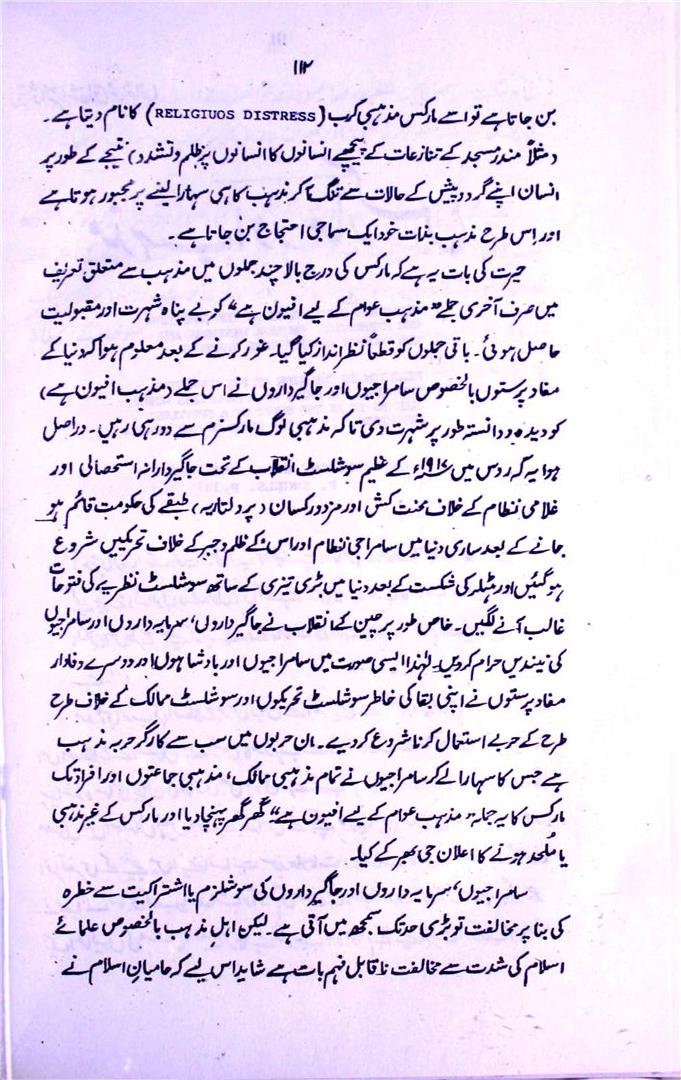 ۱۱۲
بن جاتا ہے تو اسے مارکس مذہبی کرب (RELIGIUOS DISTRESS) کا نام دیتا ہے۔
(مثلاً مندر مسجد کے تنازعات کے پیچھے انسانوں کا انسانوں پر ظلم و تشدد) نتیجے کے طور پر
انسان اپنے گرد و پیش کے حالات سے تنگ آ کر مذہب کا ہی سہارا لینے پر مجبور ہوتا ہے
اور اس طرح مذہب بذات خود ایک سماجی احتجاج بن جاتا ہے۔
حیرت کی بات یہ ہے کہ مارکس کی درج بالا چند جملوں میں مذہب سے متعلق تعریف
میں صرف آخری جملے "مذہب عوام کے لیے افیون ہے" کو بے پناہ شہرت اور مقبولیت
حاصل ہوئی۔ باقی جملوں کو قطعاً نظر انداز کیا گیا۔ غور کرنے کے بعد معلوم ہوا کہ دنیا کے
مفاد پرستوں بالخصوص سامراجیوں اور جاگیرداروں نے اس جملے (مذہب افیون ہے)
کو دیدہ و دانستہ طور پر شہرت دی تاکہ مذہبی لوگ مارکسزم سے دور ہی رہیں۔ دراصل
ہوا یہ کہ روس میں ۱۹۱۷ء کے عظیم سوشلسٹ انقلاب کے تحت جاگیردارانہ استحصالی اور
غلامی نظام کے خلاف محنت کش اور مزدور کسان (پرولتاریہ) طبقے کی حکومت قائم ہو
جانے کے بعد ساری دنیا میں سامراجی نظام اور اس کے ظلم و جبر کے خلاف تحریکیں شروع
ہو گئیں اور ہٹلر کی شکست کے بعد دنیا میں بڑی تیزی کے ساتھ سوشلسٹ نظریے کی فتوحات
غالب آنے لگیں۔ خاص طور پر چین کے انقلاب نے جاگیرداروں، سرمایہ داروں اور سامراجیوں
کی نیندیں حرام کر دیں۔ لہٰذا ایسی صورت میں سامراجیوں اور بادشاہوں اور دوسرے وفادار
مفاد پرستوں نے اپنی بقا کی خاطر سوشلسٹ تحریکوں اور سوشلسٹ ممالک کے خلاف طرح
طرح کے حربے استعمال کرنا شروع کر دیے۔ ان حربوں میں سب سے کارگر حربہ مذہب
ہے جس کا سہارا لے کر سامراجیوں نے تمام مذہبی ممالک، مذہبی جماعتوں اور افراد تک
مارکس کا یہ جملہ "مذہب عوام کے لیے افیون ہے" گھر گھر پہنچا دیا اور مارکس کے غیر مذہبی
یا ملحد ہونے کا اعلان جی بھر کے کیا۔
سامراجیوں، سرمایہ داروں اور جاگیرداروں کی سوشلزم یا اشتراکیت سے خطرہ
کی بنا پر مخالفت تو بڑی حد تک سمجھ میں آتی ہے۔ لیکن اہل مذہب بالخصوص علمائے
اسلام کی شدت سے مخالفت ناقابل فہم بات ہے شاید اس لیے کہ حامیانِ اسلام نے